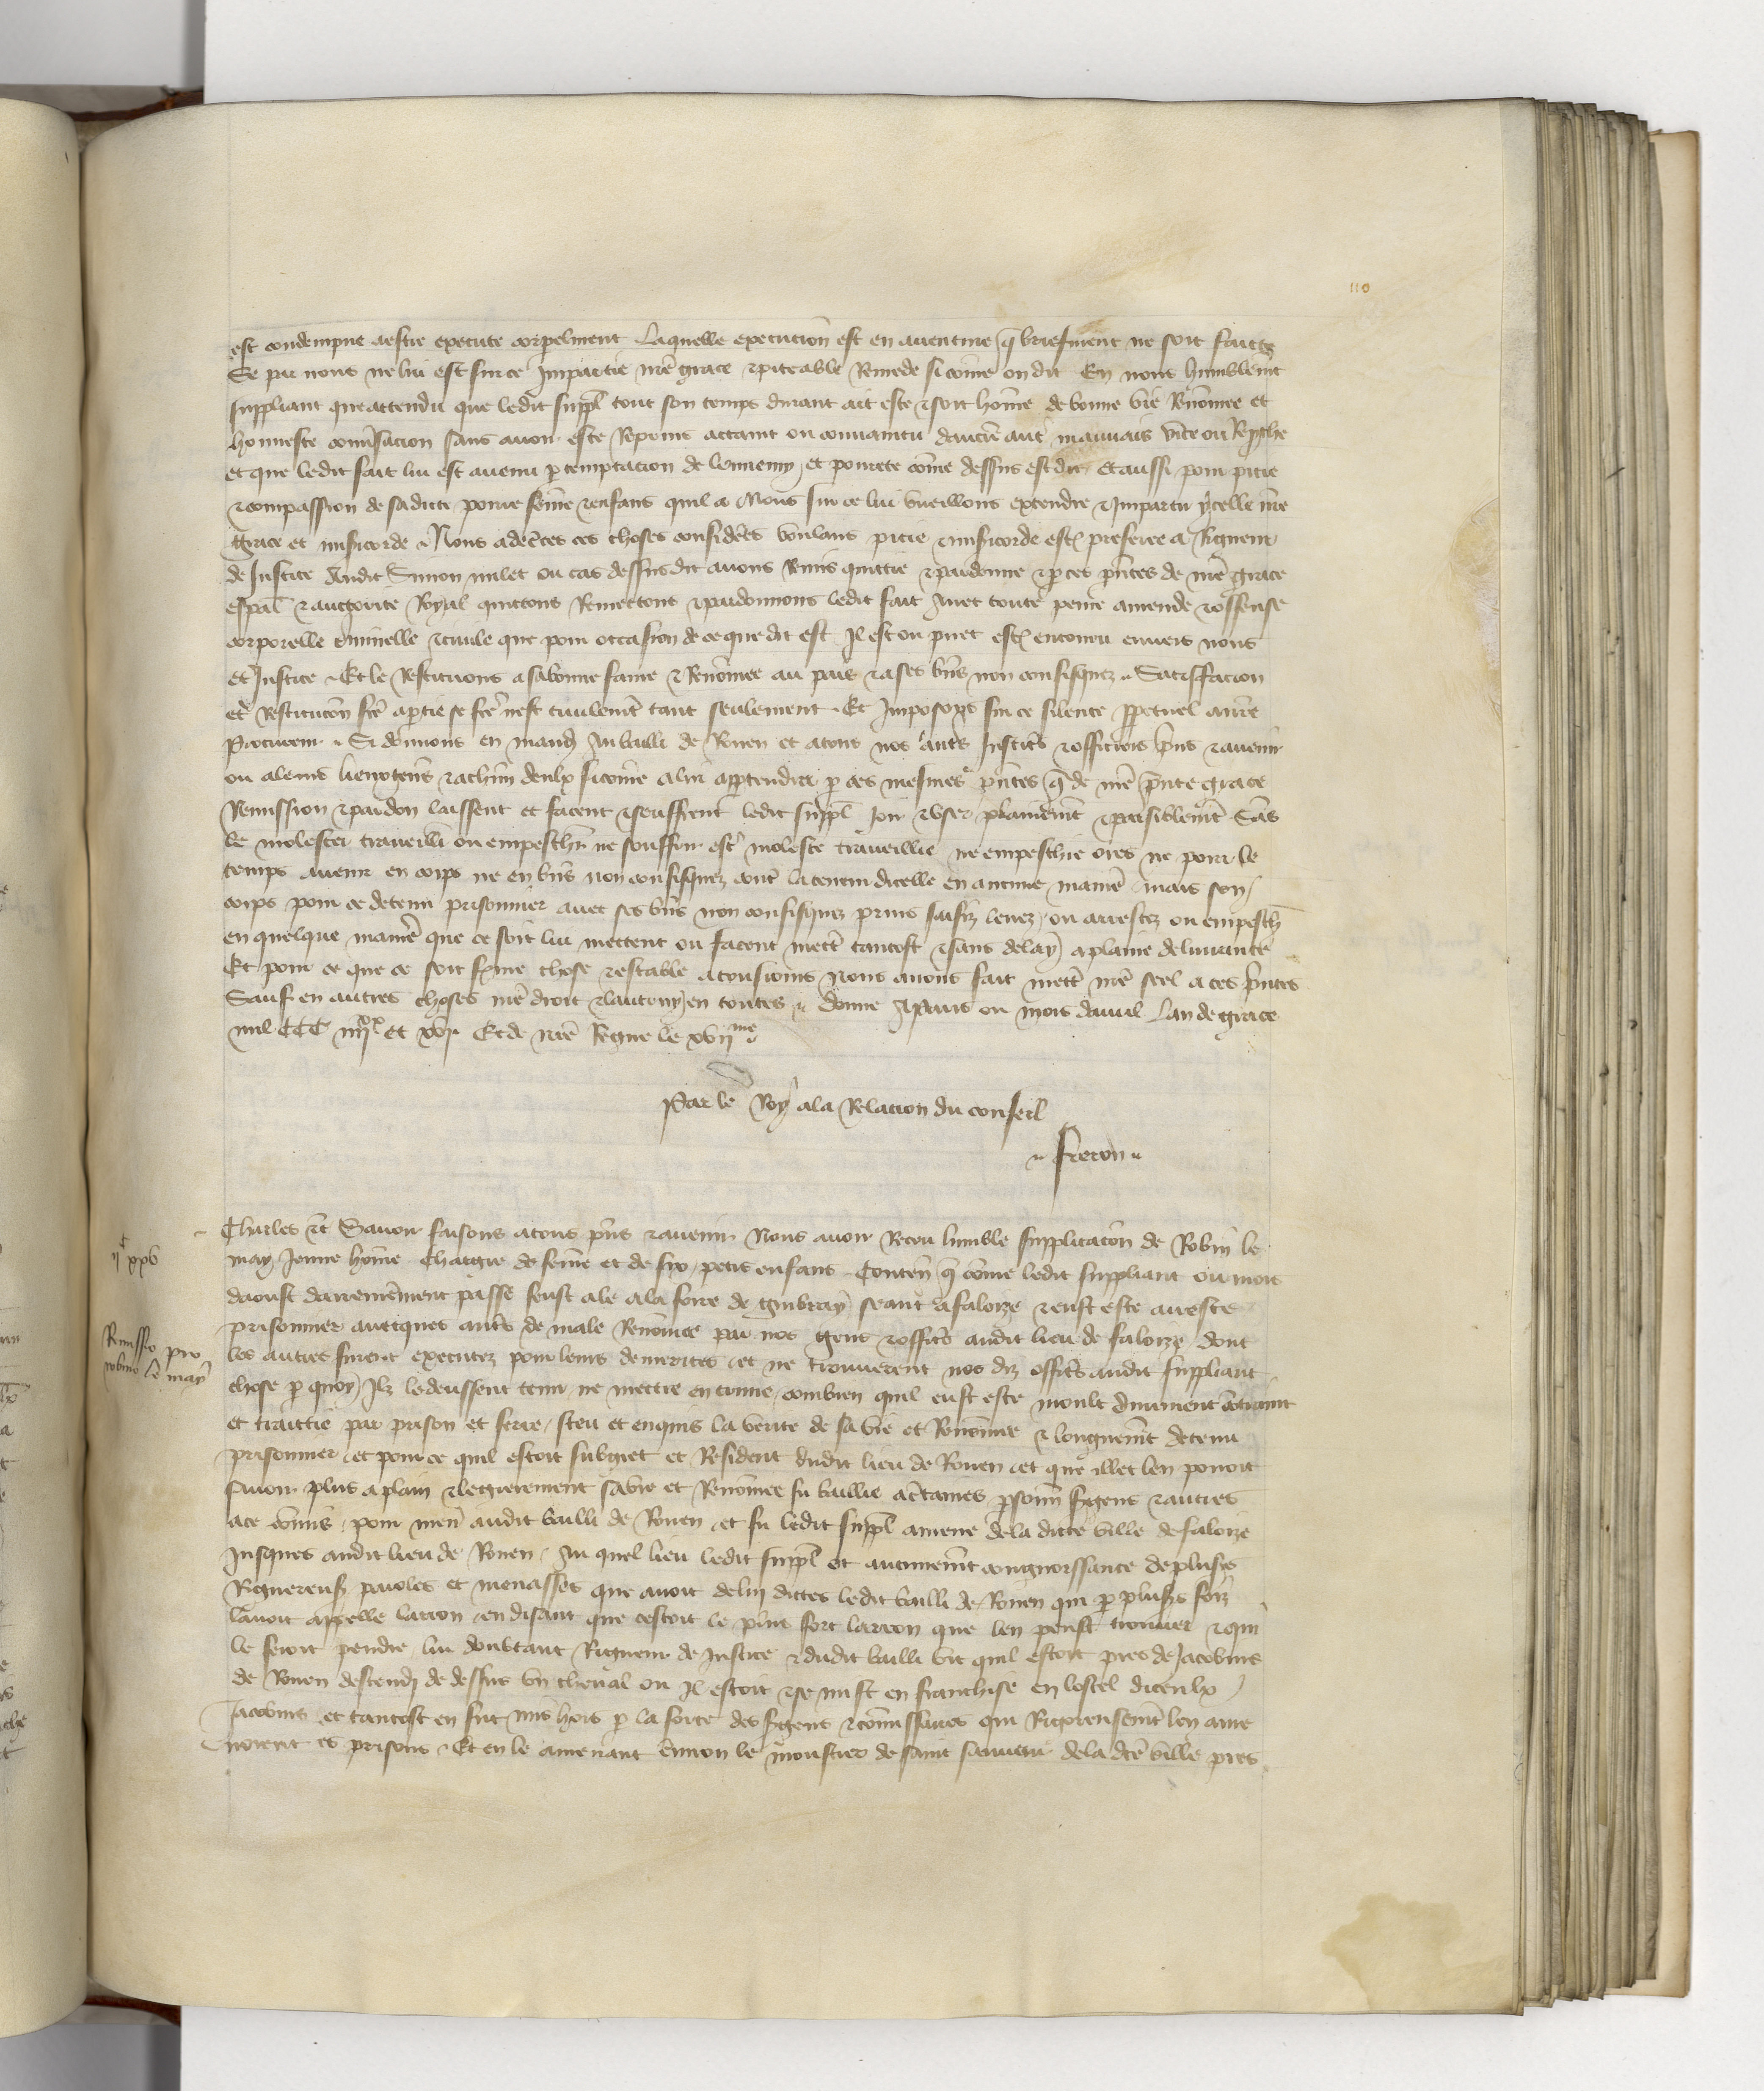 110
est condempne aestre execute corpelment Laquelle execucion est en aventure q̃ briefment ne soit faicte
Se par nous ne lui est sur ce Impartie nr̃e grace ⁊ piteable Remede si com̃e on dit En nous humblem̃t
suppliant que attendu que ledit suppl̃ tout son temps durant ait este ⁊ soit hom̃e de bonne vie Renom̃ee et
honneste conv̾sacion sans avoir este Repris attaint ou convaincu daucũ aut̾ mauvais vice ou
et que ledit fait lui est avenu p temptacion de lennemy et povrete com̃e dessus est dit Et aussi pour pitie
⁊ compassion de sa dicte povre fem̃e ⁊ enfans quil a Nous sur ce lui vueillons extendre ⁊ Impartir ycelle nr̃e
Grace et mis̾icorde Nous adec̃tes ces choses consider̃es voulans pitie ⁊ mis̾icorde est̾ preferee a Rigueur
de Justice Audit Simon milet ou cas dessusdit avons Remis quittie ⁊ pardonne ⁊ p ces pñtes de nr̃e grace
esp̃al ⁊ auctorite Royal quittons Remettons ⁊ pardonnons ledit fait Avec toute peine amende ⁊ offense
corporelle criminelle ⁊ civile que pour occasion de ce que dit est Il est ou puet est̾ encouru envers nous
et Justice Et le Restituons a sa bonne fame ⁊ Renom̃ee au pais ⁊ a ses bñs non confisquez Satisffacion
et Restitucõn fc̃e a p̃tie se fc̃e nest civilem̃t tant seulement Et Imposons sur ce silence p̃petuel a nr̃e
Procureur Si donnons en mand̃ Au bailli de Rouen et a tous nos aut̾s Justic̃s ⁊ officiers p̃ns ⁊ avenir
ou a leurs lieuxtenñs ⁊ a chũn deulx si com̃e a lui appartendra p ces mesmes pñtes q̃ de nr̃e p̃nte grace
Remission ⁊ pardon laissent et facent ⁊ seuffrent ledit suppl̃ Joir ⁊ user plainem̃t ⁊ paisiblem̃t Sãs
le molester traveillr̃ ou empeschr̃ ne souffrir est̾ moleste traveillie ne empeschie ores ne pour le
temps avenir en corps ne en bñs non confisquez cont̾ la teneur dicelle en aucune manier̃ Mais son
corps pour ce detenu prisonnier avec ses bñs non confisquez prins saisiz levez ou arrestez ou empesch̃
en quelque manier̃ que ce soit lui mettent ou facent mett̾ tantost ⁊ sans delay a plaine delivrance
Et pour ce que ce soit ferme chose ⁊ estable a tousiours Nous avons fait mett̾ nr̃e seel a ces p̃ntes
Sauf en autres choses nr̃e droit ⁊ lautruy en toutes Donne A paris ou mois davril Lan de grace
mil CCC iiijˣˣ et xvj Et de nr̃e Regne le xvijᵐᵉ
Par le Roy a la Relacion du conseil
Freron
ijᶜ xxv
Charles ⁊c̃ Savoir faisons a tous p̃ns ⁊ avenir Nous avoir Receu humble supplicacõn de Robin le
may Jeune hom̃e Chargie de fem̃e et de six petis enfans Conten̾ q̃ com̃e ledit suppliant ou mois
daoust darrenierement passe feust ale a la foire de guibray seant a faloize ⁊ eust este arreste
Remissio pro
robino le may
prisonnier avecques aut̾s de male Renom̃ee par nos gens ⁊ offic̃s audit lieu de faloize dont
les autres furent executez pour leurs demerites et ne trouverent nos diz offic̃s audit suppliant
chose p quoy Ilz le deussent tenir ne mettre en crime combien quil eust este moult durement
et traittie par prison et serre sceu et enquis la verite de sa vie et Renom̃ee ⁊ longuem̃t detenu
prisonnier et pour ce quil estoit subgiet et Resident dudit lieu de Rouen et que illec len povoit
savoir plus a plain ⁊ legierement sa vie et Renom̃ee fu baillie a c̃taines p̃sonñ s̾gens ⁊ autres
a ce com̃is pour men̾ audit bailli de Rouen et fu ledit suppl̃ amene de la dicte ville de faloize
Jusques audit lieu de Rouen Au quel lieu ledit suppl̃ ot aucunem̃t congnoissance de plus̾s
Riguereuses paroles et menasses que avoit de luy dictes ledit bailli de Rouen qui p plus̾s foiz
lavoit appelle larron en disant que cestoit le plus fort larron que len peust trouver ⁊ quil
le feroit pendre lui doubtant Rigueur de Justice ⁊ dudit bailli vit quil estoit pres de Jacobins
de Rouen descendi de dessus un cheval ou Il estoit ⁊ se mist en franchise en lostel diceulx
Jacobins et tantost en fut mis hors p la force des s̾gens ⁊ com̃issaires qui Rigoreusem̃t len ame
noient es prisons Et en le amenant env̾on le moustier de saint sauveur de la dc̃e ville pres